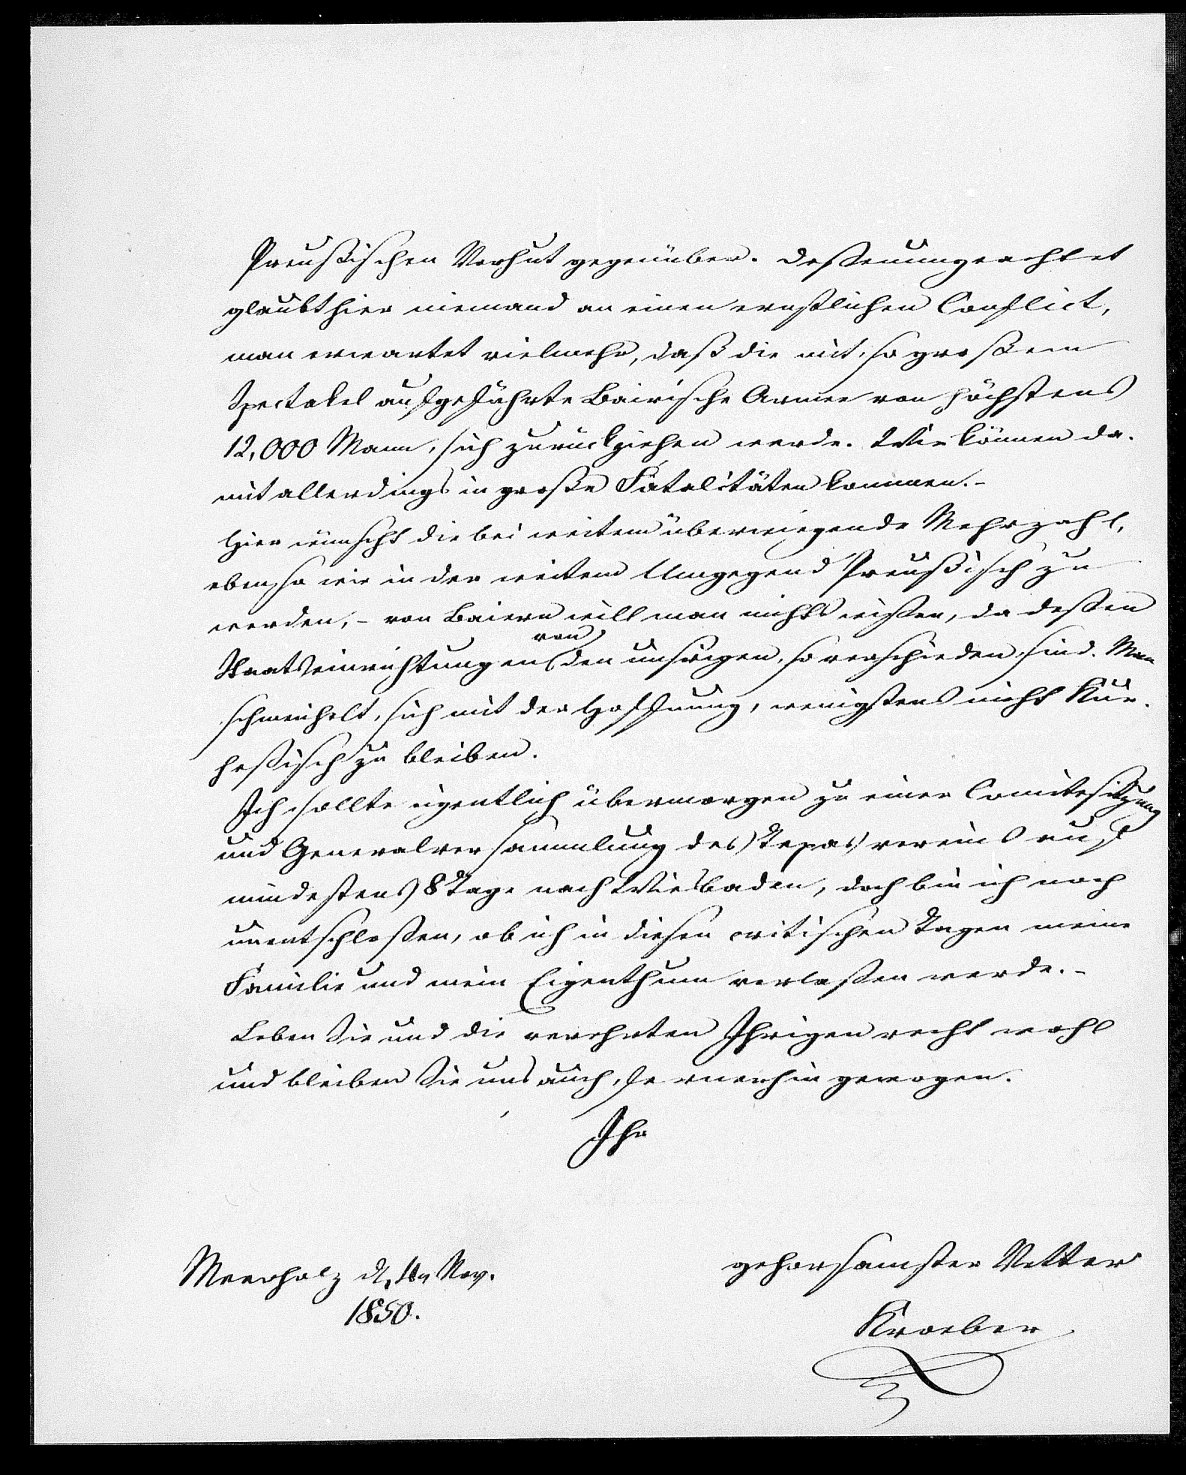 Preußischen Vorhut gegenüber. Deßenungeachtet
glaubt hier niemand an einen ernstlichen Conflict,
man erwartet vielmehr, daß die mit so großem
Spectakel aufgeführte Bairische Armee von höchstens
12,000 Mann, sich zurückziehen werde. Wir können da-
mit allerdings in große Fatalitäten kommen. -
Hier wünscht die bei weitem überwiegende Mehrzahl,
eben so wie in der weitern Umgegend Preußisch zu
werden, - von Baiern will man nichts wißen, da deßen
von
Staatseinrichtungen den unsrigen so verschieden sind. Man
schmeichelt sich mit der Hoffnung, wenigstens nicht Kur-
heßisch zu bleiben.
Ich sollte eigentlich übermorgen zu einer Comitesitzung
und Generalversammlung des Texas vereins auf
mindestens 8 Tage nach Wiesbaden, doch bin ich noch
unentschloßen, ob ich in diesen critischen Tagen meine
Familie und mein Eigenthum verlaßen werde. -
Leben Sie und die verehrten Ihrigen recht wohl
und bleiben Sie uns auch fernerhin gewogen.
Ihr
gehorsamster Vetter
Kroeber
Meerholz d. 4n Nov.
1850.